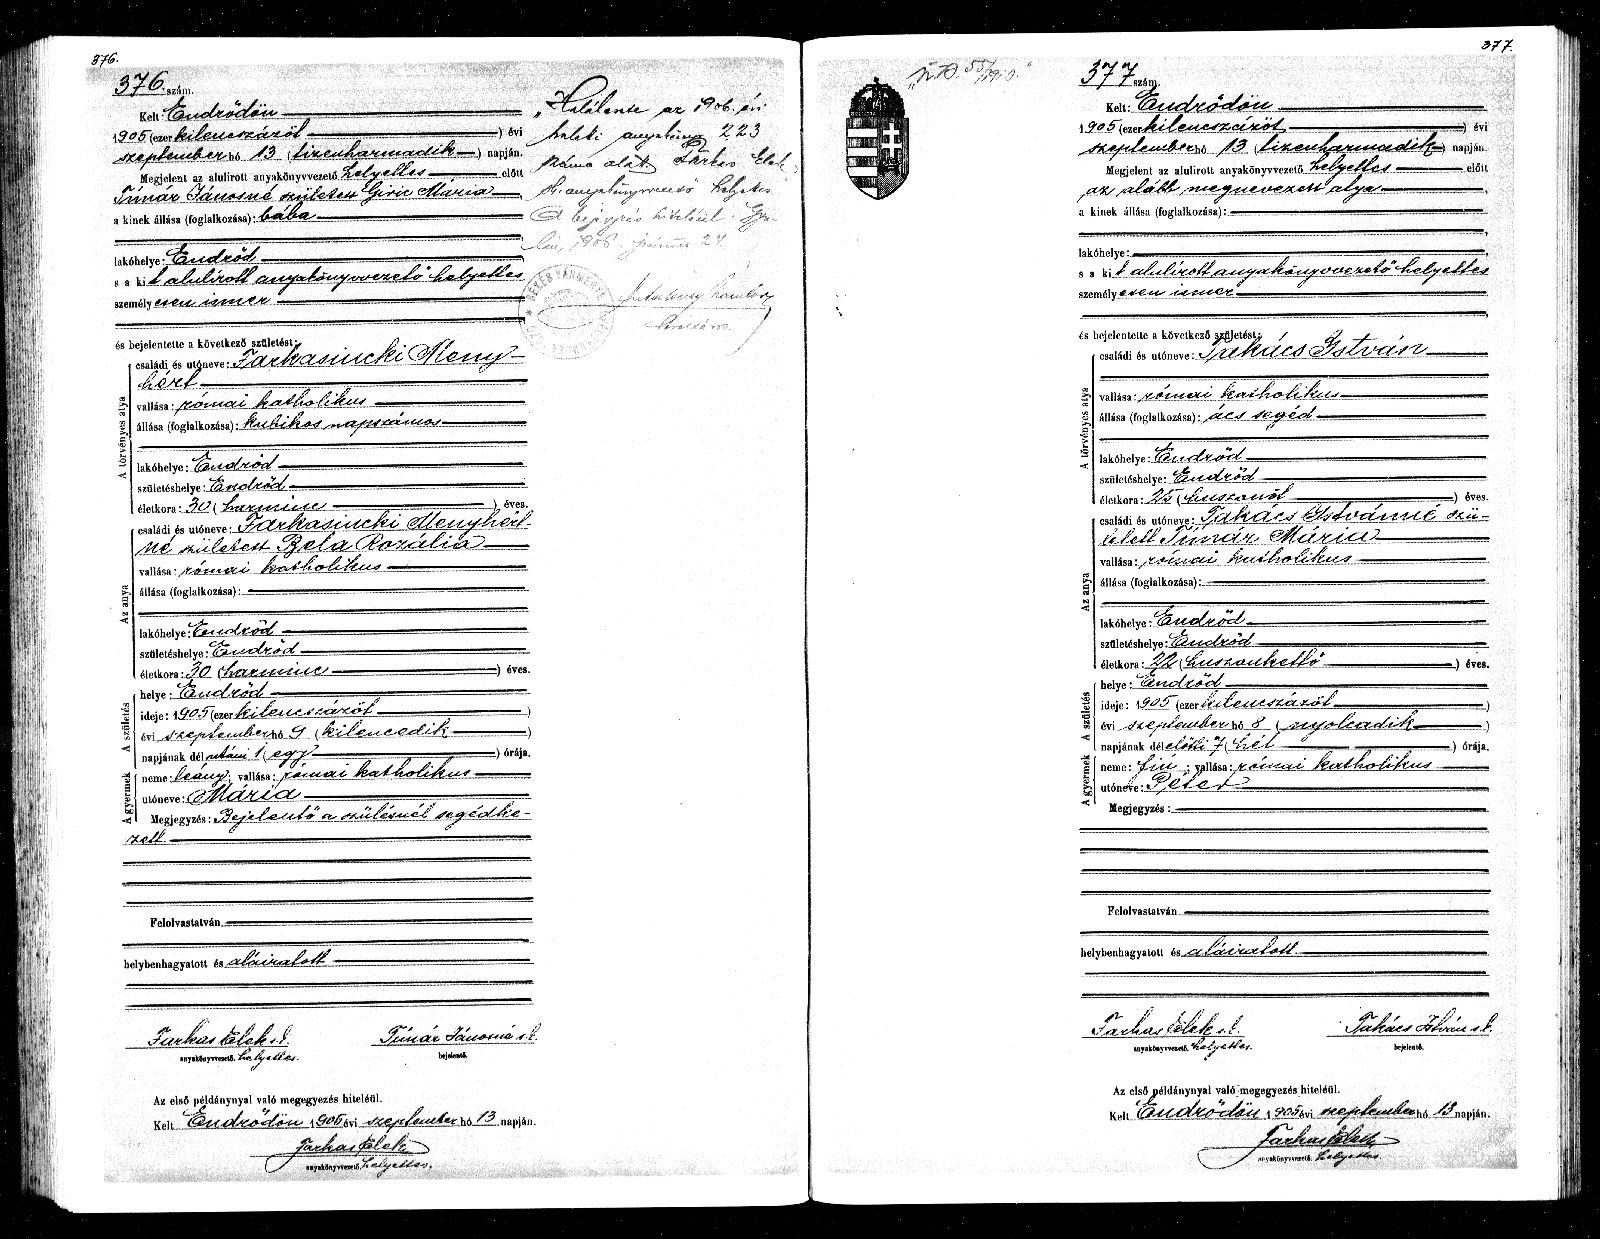 376.
376. szám.
Kelt: Endrődön
1905 (ezer kilencszázöt ) évi
szeptember hó 13 (tizenharmadik ) napján.
Megjelent az alulirott anyakönyvvezető helyettes előtt
Tímár Jánosné született Giricz Mária,
a kinek állása (foglalkozása): bába
lakóhelye: Endrőd
s a kit alulírott anyakönyvvezető helyettes
személyesen ismer
és bejelentette a következő születést:
A törvényes atya
családi és utóneve: Farkasincki Meny-
hért
vallása: római katholikus
állása (foglalkozása): kubikos napszámos
lakóhelye: Endrőd
születéshelye: Endrőd
életkora: 30 (harminc ) éves.
Az anya
családi és utóneve: Farkasincki Menyhért-
né született Bela Rozália
vallása: római katholikus
állása (foglalkozása):
lakóhelye: Endrőd
születéshelye: Endrőd
életkora: 30 (harminc ) éves.
A születés
helye: Endrőd
ideje: 1905 (ezer kilencszázöt )
évi szeptember hó 9 (kilencedik )
napjának délutáni 1 (egy ) órája.
A gyermek
neme: leány; vallása: római katholikus
utóneve: Mária
Megjegyzés: Bejelentő a szülésnél segédke-
zett.
Felolvastatván
helybenhagyatott és aláiratott
Farkas Elek s.k. Tímár Jánosné s.k.
anyakönyvvezető helyettes. bejelentő.
Az első példánynyal való megegyezés hiteléül.
Kelt Endrődön 1905 évi szeptember hó 13 napján.
Farkas Elek
anyakönyvvezető helyettes.
"Halálesete az 1906. évi
halotti anyakönyv 223
száma alatt. Farkas Elek
s.k. anyakönyvvezető helyettes"
A bejegyzés hiteléül: Gyu-
lán, 1906. június 27.
BÉKÉS VÁRMEGYE
377.
377 szám.
Kelt: Endrődön
1905 (ezer kilencszázöt ) évi
szeptember hó 13 (tizenharmadik ) napján.
Megjelent az alulirott anyakönyvvezető helyettes előtt
az alább megnevezett atya,
a kinek állása (foglalkozása):
lakóhelye:
s a kit alulírott anyakönyvvezető helyettes
személyesen ismer
és bejelentette a következő születést:
A törvényes atya
családi és utóneve: Takács István
vallása: római katholikus
állása (foglalkozása): ács segéd
lakóhelye: Endrőd
születéshelye: Endrőd
életkora: 25 (huszonöt ) éves.
Az anya
családi és utóneve: Takács Istvánné szü-
letett Tímár Mária
vallása: római katholikus
állása (foglalkozása):
lakóhelye: Endrőd
születéshelye: Endrőd
életkora: 22 (huszonkettő ) éves.
A születés
helye: Endrőd
ideje: 1905 (ezer kilencszázöt )
évi szeptember hó 8 (nyolcadik )
napjának délelőtti 7 (hét ) órája.
A gyermek
neme: fiú; vallása: római katholikus
utóneve: Péter
Megjegyzés:
Felolvastatván
helybenhagyatott és aláiratott.
Farkas Elek s.k. Takács István s.k.
anyakönyvvezető helyettes. bejelentő.
Az első példánynyal való megegyezés hiteléül.
Kelt Endrődön 1905 évi szeptember hó 13 napján.
Farkas Elek
anyakönyvvezető helyettes.